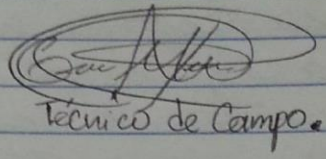 Técnico de Campo.